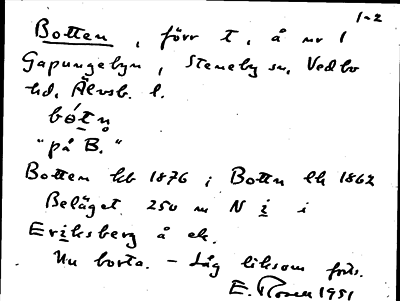 1-2
Botten, förr t, å nr 1
Gapungebyn, Steneby sn, Vedbo
hd, Älvsb. l.
bótn̥
"på B."
Botten kb 1876; Bottn lh 1862
Beläget 250 m N i i
Eriksberg å ek.
Nu borta. - Låg liksom förs.
E. Rosen 1951